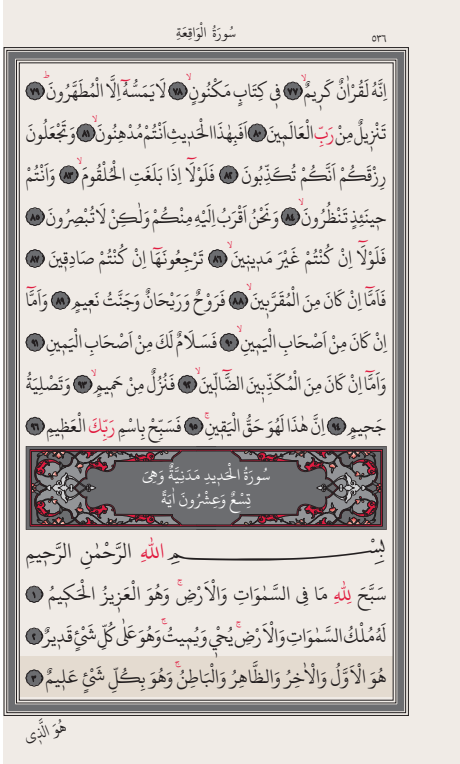 سُورَةُ الْوَاقِعَةِ ٥٣٦
اِنَّهُ لَقُرْاٰنٌ كَرٖيمٌۙ ﴿٧٧﴾ فٖي كِتَابٍ مَكْنُونٍۙ ﴿٧٨﴾ لَا يَمَسُّهُٓ اِلَّا الْمُطَهَّرُونَۜ ﴿٧٩﴾
تَنْزٖيلٌ مِنْ رَبِّ الْعَالَمٖينَ ﴿٨٠﴾ اَفَبِهٰذَا الْحَدٖيثِ اَنْتُمْ مُدْهِنُونَۙ ﴿٨١﴾ وَتَجْعَلُونَ
رِزْقَكُمْ اَنَّكُمْ تُكَذِّبُونَ ﴿٨٢﴾ فَلَوْلَٓا اِذَا بَلَغَتِ الْحُلْقُومَۙ ﴿٨٣﴾ وَاَنْتُمْ
حٖينَئِذٍ تَنْظُرُونَۙ ﴿٨٤﴾ وَنَحْنُ اَقْرَبُ اِلَيْهِ مِنْكُمْ وَلٰكِنْ لَا تُبْصِرُونَ ﴿٨٥﴾
فَلَوْلَٓا اِنْ كُنْتُمْ غَيْرَ مَدٖينٖينَۙ ﴿٨٦﴾ تَرْجِعُونَهَٓا اِنْ كُنْتُمْ صَادِقٖينَ ﴿٨٧﴾
فَاَمَّٓا اِنْ كَانَ مِنَ الْمُقَرَّبٖينَۙ ﴿٨٨﴾ فَرَوْحٌ وَرَيْحَانٌ وَجَنَّتُ نَعٖيمٍ ﴿٨٩﴾ وَاَمَّٓا
اِنْ كَانَ مِنْ اَصْحَابِ الْيَمٖينِۙ ﴿٩٠﴾ فَسَلَامٌ لَكَ مِنْ اَصْحَابِ الْيَمٖينِ ﴿٩١﴾
وَاَمَّٓا اِنْ كَانَ مِنَ الْمُكَذِّبٖينَ الضَّٓالّٖينَۙ ﴿٩٢﴾ فَنُزُلٌ مِنْ حَمٖيمٍۙ ﴿٩٣﴾ وَتَصْلِيَةُ
جَحٖيمٍ ﴿٩٤﴾ اِنَّ هٰذَا لَهُوَ حَقُّ الْيَقٖينِۚ ﴿٩٥﴾ فَسَبِّحْ بِاسْمِ رَبِّكَ الْعَظٖيمِ ﴿٩٦﴾
سُورَةُ الْحَدٖيدِ مَدَنِيَّةٌ وَهِىَ
تِسْعٌ وَعِشْرُونَ اٰيَةً
بِسْمِ اللّٰهِ الرَّحْمٰنِ الرَّحٖيمِ
سَبَّحَ لِلّٰهِ مَا فِى السَّمٰوَاتِ وَالْاَرْضِۚ وَهُوَ الْعَزٖيزُ الْحَكٖيمُ ﴿١﴾
لَهُ مُلْكُ السَّمٰوَاتِ وَالْاَرْضِۚ يُحْيٖ وَيُمٖيتُۚ وَهُوَ عَلٰى كُلِّ شَيْءٍ قَدٖيرٌ ﴿٢﴾
هُوَ الْاَوَّلُ وَالْاٰخِرُ وَالظَّاهِرُ وَالْبَاطِنُۚ وَهُوَ بِكُلِّ شَيْءٍ عَلٖيمٌ ﴿٣﴾
هُوَ الَّذٖى